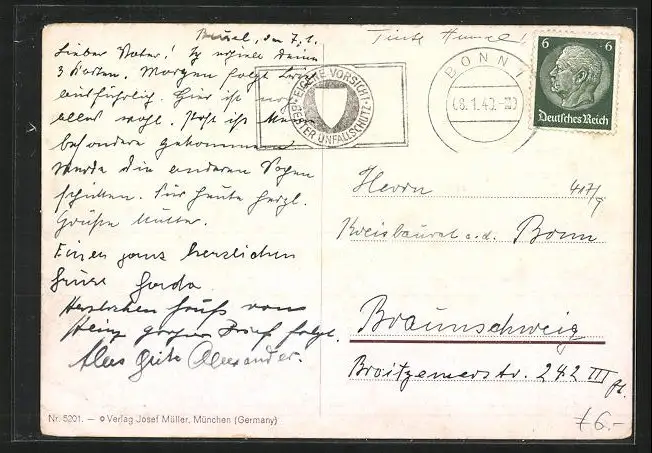 den 7.1.
Lieber Vater! Ich erhielt Deine
3 Karten. Morgen folgt Brief
ausführlich. Hier ist noch
alles wohl.
besonders gekommen
werde die anderen Sachen
schicken. Für heute herzl.
Grüße Mutter.
Einen ganz herzlichen
Gruss Gerda.
Herzlichen Gruß von
Heinz großer Brief folgt.
Alles Gute Alexander.
Nr. 5201. — © Verlag Josef Müller, München (Germany)
EIGENE VORSICHT
BESTER UNFALLSCHUTZ
BONN 1
8.1.40.
6 6
Deutsches Reich
Herrn
Kreisbaurat a.d. Bonn
Braunschweig
Broitzemerstr. 242 III
6.-